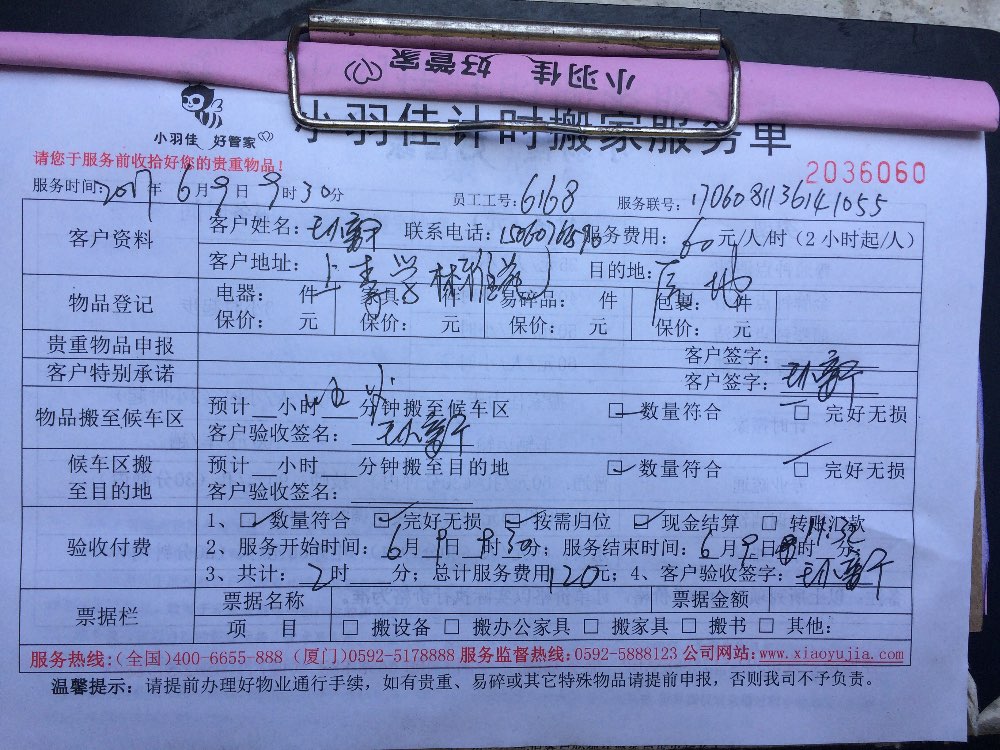 小羽佳 好管家
小羽佳 好管家
小羽佳计时搬家服务单
请您于服务前收拾好您的贵重物品!
2036060
服务时间:2017年6月9日9时30分 员工工号:6168 服务联号:1706081136141055
客户资料
客户姓名: 联系电话: 服务费用:60元/人/时(2小时起/人)
客户地址: 目的地:
物品登记
电器: 件 家具: 件 易碎品: 件 包装: 件
保价: 元 保价: 元 保价: 元 保价: 元
贵重物品申报 客户签字:
客户特别承诺 客户签字:
物品搬至候车区
预计__小时____分钟搬至候车区 ☑数量符合 □ 完好无损
客户验收签名:
候车区搬至目的地
预计__小时____分钟搬至目的地 ☑数量符合 □ 完好无损
客户验收签名:
验收付费
1、☑数量符合 ☑完好无损 ☑按需归位 ☑现金结算 □ 转账汇款
2、服务开始时间:6月9日9时30分;服务结束时间:6月9日11:30时 分;
3、共计:2时___分;总计服务费用120元;4、客户验收签字:
票据栏
票据名称 票据金额
项 目 □ 搬设备 □ 搬办公家具 □ 搬家具 □ 搬书 □ 其他:
服务热线:(全国)400-6655-888 (厦门)0592-5178888 服务监督热线:0592-5888123 公司网站:www.xiaoyujia.com
温馨提示:请提前办理好物业通行手续,如有贵重、易碎或其它特殊物品请提前申报,否则我司不予负责。